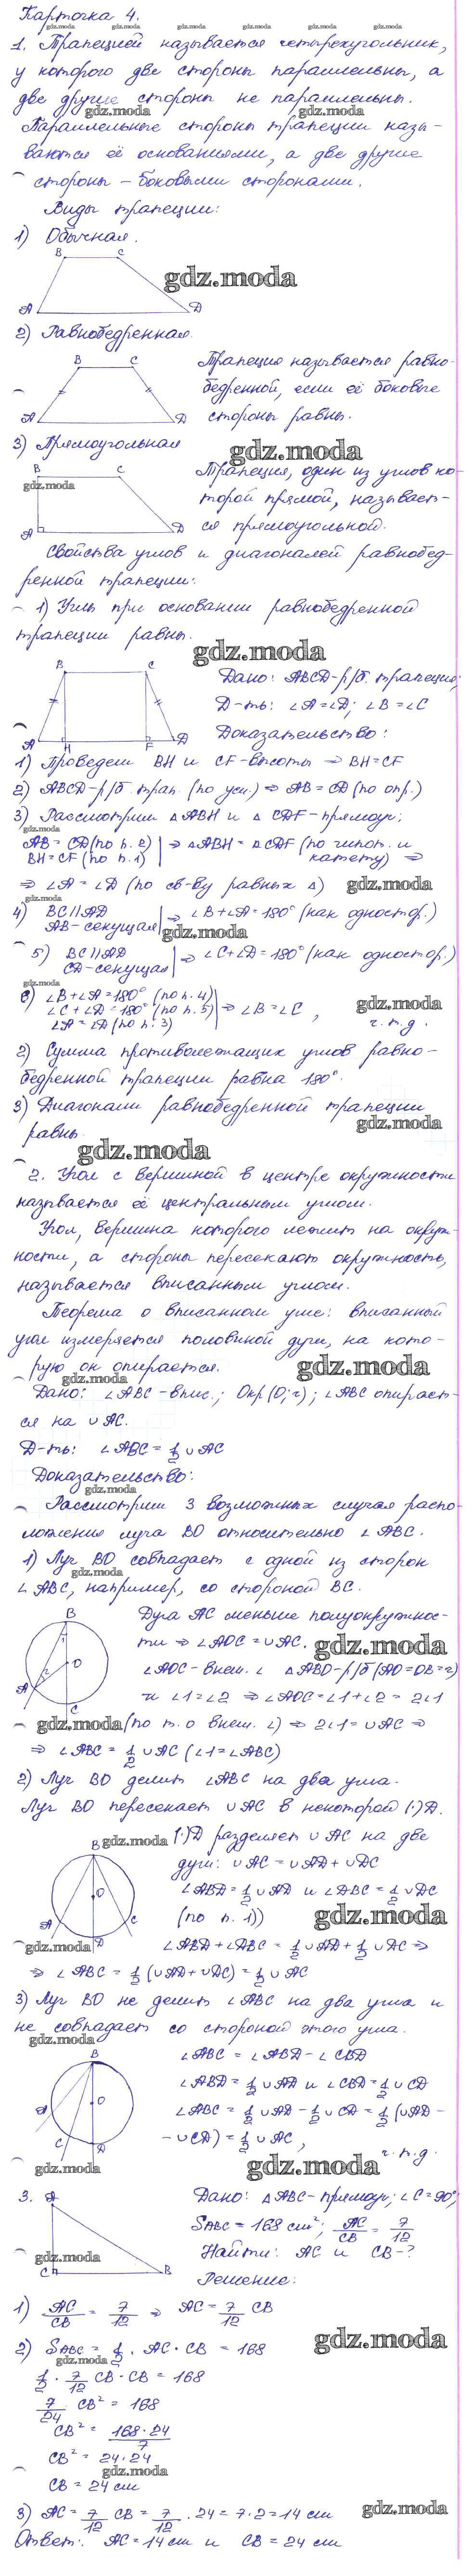 Карточка 4.
gdz.moda gdz.moda gdz.moda gdz.moda gdz.moda
1. Трапецией называется четырехугольник,
у которого две стороны параллельны, а
две другие стороны не параллельны.
gdz.moda gdz.moda
Параллельные стороны трапеции назы-
ваются её основаниями, а две другие
стороны – боковыми сторонами.
Виды трапеции:
1) Обычная.
B C
gdz.moda
A D
2) Равнобедренная.
B C
Трапеция называется равно-
бедренной, если её боковые
стороны равны.
A D
3) Прямоугольная
gdz.moda
B C
gdz.moda
Трапеция, один из углов ко-
торой прямой, называет-
ся прямоугольной.
A D
Свойства углов и диагоналей равнобед-
ренной трапеции:
1) Углы при основании равнобедренной
трапеции равны.
gdz.moda
B C
A H F D
Дано: ABCD-р/б. трапеция;
Д-ть: ∠A=∠D; ∠B=∠C
Доказательство:
1) Проведем BH и CF-высоты ⇒ BH=CF
2) ABCD-р/б. трап. (по усл.) ⇒ AB=CD (по опр.)
3) Рассмотрим △ABH и △CDF-прямоуг;
gdz.moda
AB=CD (по п. 2) | ⇒ △ABH = △CDF (по гипот. и
BH=CF (по п. 1) | катету) ⇒
⇒ ∠A = ∠D (по св-ву равных △) gdz.moda
gdz.moda
4) BC∥AD | ⇒ ∠B+∠A=180° (как одностор.)
AB-секущая | gdz.moda
5) BC∥AD | ⇒ ∠C+∠D=180° (как одностор.)
CD-секущая |
gdz.moda
6) ∠B+∠A=180° (по п. 4) |
∠C+∠D=180° (по п. 5) | ⇒ ∠B=∠C,
∠A=∠D (по п. 3) | ч.т.д.
gdz.moda
2) Сумма противолежащих углов равно-
бедренной трапеции равна 180°.
3) Диагонали равнобедренной трапеции
равны.
gdz.moda
gdz.moda
2. Угол с вершиной в центре окружности
называется её центральным углом.
Угол, вершина которого лежит на окруж-
ности, а стороны пересекают окружность,
называется вписанным углом.
Теорема о вписанном угле: вписанный
угол измеряется половиной дуги, на кото-
рую он опирается.
gdz.moda
gdz.moda
Дано: ∠ABC-впис.; Окр(O;r); ∠ABC опирает-
ся на ∪AC.
Д-ть: ∠ABC = 1/2 ∪AC
Доказательство:
gdz.moda
Рассмотрим 3 возможных случая распо-
ложения луча BO относительно ∠ABC.
1) Луч BO совпадает с одной из сторон
gdz.moda
∠ABC, например, со стороной BC.
B
1
O
2
A
C
Дуга AC меньше полуокружнос-
ти ⇒ ∠AOC=∪AC.
gdz.moda
∠AOC-внеш. ∠ △ABO-р/б (AO=OB=r)
и ∠1=∠2 ⇒ ∠AOC=∠1+∠2=2∠1
gdz.moda
(по т. о внеш. ∠) ⇒ 2∠1=∪AC ⇒
⇒ ∠ABC = 1/2 ∪AC (∠1=∠ABC)
2) Луч BO делит ∠ABC на два угла.
Луч BO пересекает ∪AC в некоторой (·)D.
B
gdz.moda
O
A C
D
gdz.moda
(·)D разделяет ∪AC на две
дуги: ∪AC = ∪AD + ∪DC
∠ABD = 1/2 ∪AD и ∠DBC = 1/2 ∪DC
(по п. 1))
gdz.moda
∠ABD+∠DBC = 1/2 ∪AD + 1/2 ∪DC ⇒
⇒ ∠ABC = 1/2 (∪AD+∪DC) = 1/2 ∪AC
3) Луч BO не делит ∠ABC на два угла и
не совпадает со стороной этого угла.
gdz.moda
B
O
A
C D
gdz.moda
∠ABC = ∠ABD - ∠CBD
∠ABD = 1/2 ∪AD и ∠CBD = 1/2 ∪CD
∠ABC = 1/2 ∪AD - 1/2 ∪CD = 1/2 (∪AD -
- ∪CD) = 1/2 ∪AC,
ч.т.д.
gdz.moda
3.
A
gdz.moda
C B
Дано: △ABC-прямоуг; ∠C=90°;
SABC=168 см²; AC/CB = 7/12
Найти: AC и CB-?
Решение:
1) AC/CB = 7/12 ⇒ AC = 7/12 CB
gdz.moda
2) SABC = 1/2 · AC · CB = 168
gdz.moda
1/2 · 7/12 CB · CB = 168
7/24 CB² = 168
CB² = 168·24/7
CB² = 24·24
CB = 24 см
3) AC = 7/12 CB = 7/12 · 24 = 7·2 = 14 см
gdz.moda
Ответ: AC=14 см и CB=24 см